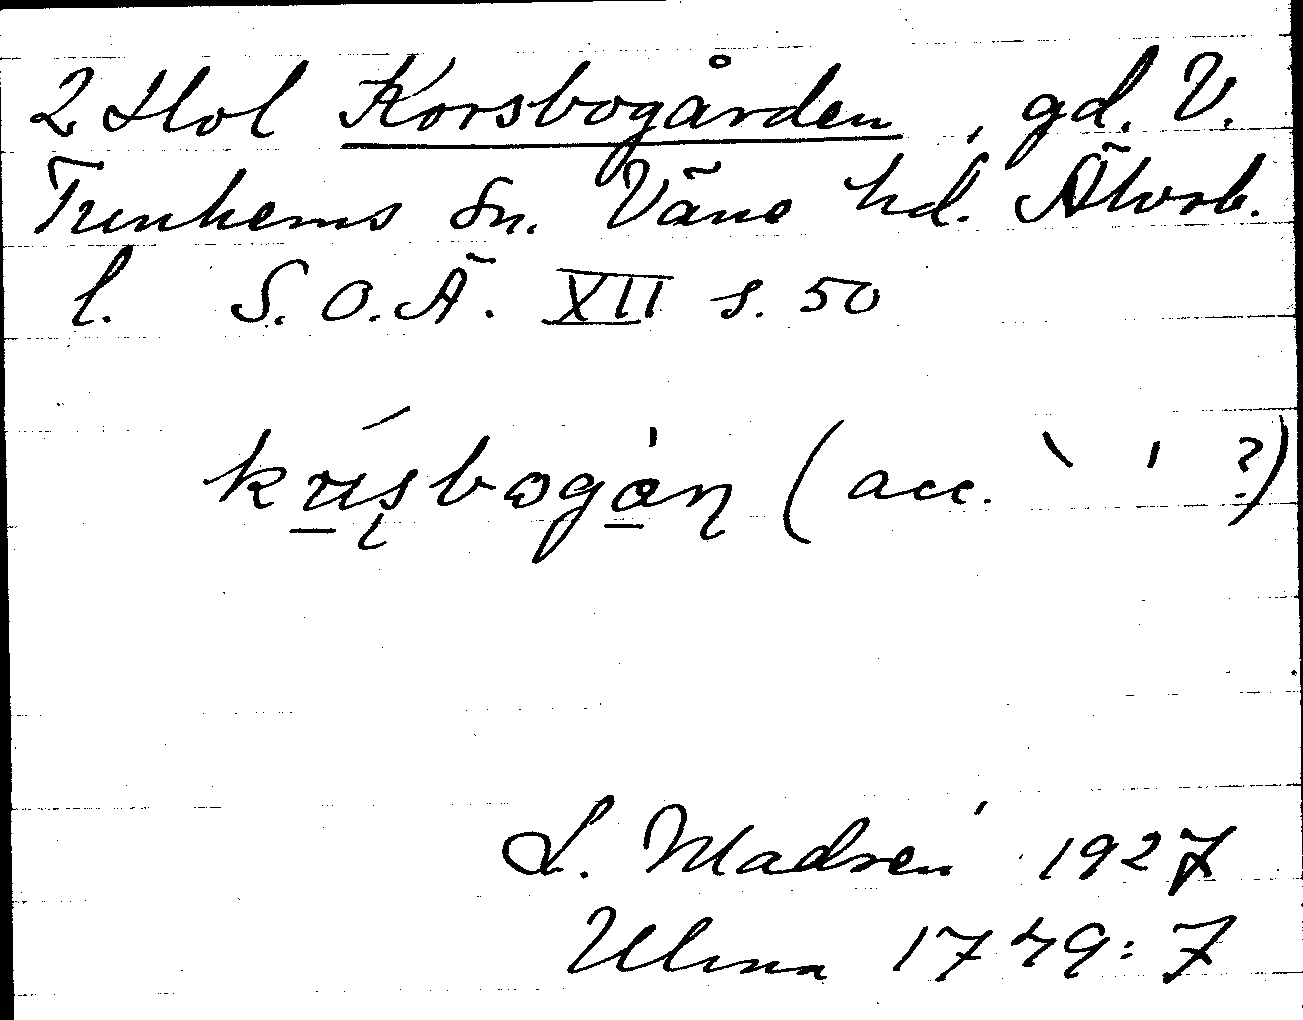 2 Hol Korsbogården, gd. V.
Tunhems sn. Väne hd. Älvsb.
l. S.O.Ä. XII s. 50
(acc. ` ' ?)
L. Madsén 1927
Ulma 1749:7